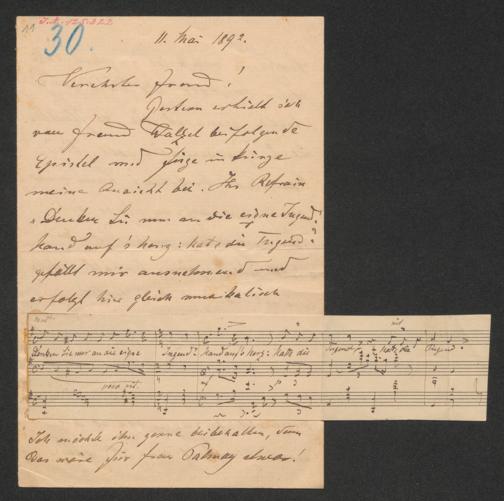 11
I.N. 125.322
30.
11. Mai 1892.
Verehrter Freund!
Gestern erhielt ich
von Freund Walzel beifolgende
Epistel und füge in Kürze
meine Ansicht bei. Ihr Refrain
"Denken Sie nur an die eigne Jugend?
hand auf's herz: hats die Tugend?"
gefällt mir ausnehmend und
erfolgt hier gleich musikalisch
rit
Denken Sie nur an die eigne Jugend? hand aufs herz: hatts die Tugend? hatts die Tugend?
poco rit.
Ich möchte ihn gerne beibehalten, denn
das wäre für frau Palmay etwas!